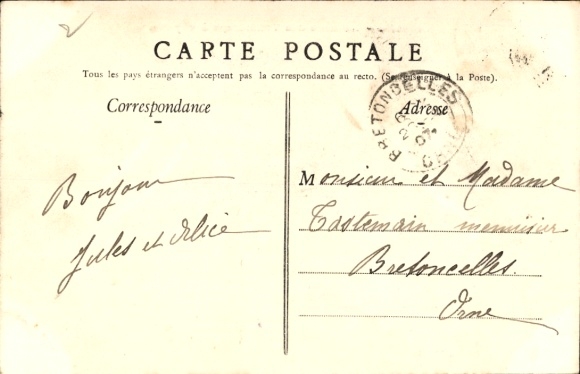 CARTE POSTALE
Tous les pays étrangers n'acceptent pas la correspondance au recto. (Se renseigner à la Poste).
Correspondance
Adresse
BRETONCELLES
Bonjour
Jules et
Monsieur et Madame
Tastemain menuisier
Bretoncelles
Orne